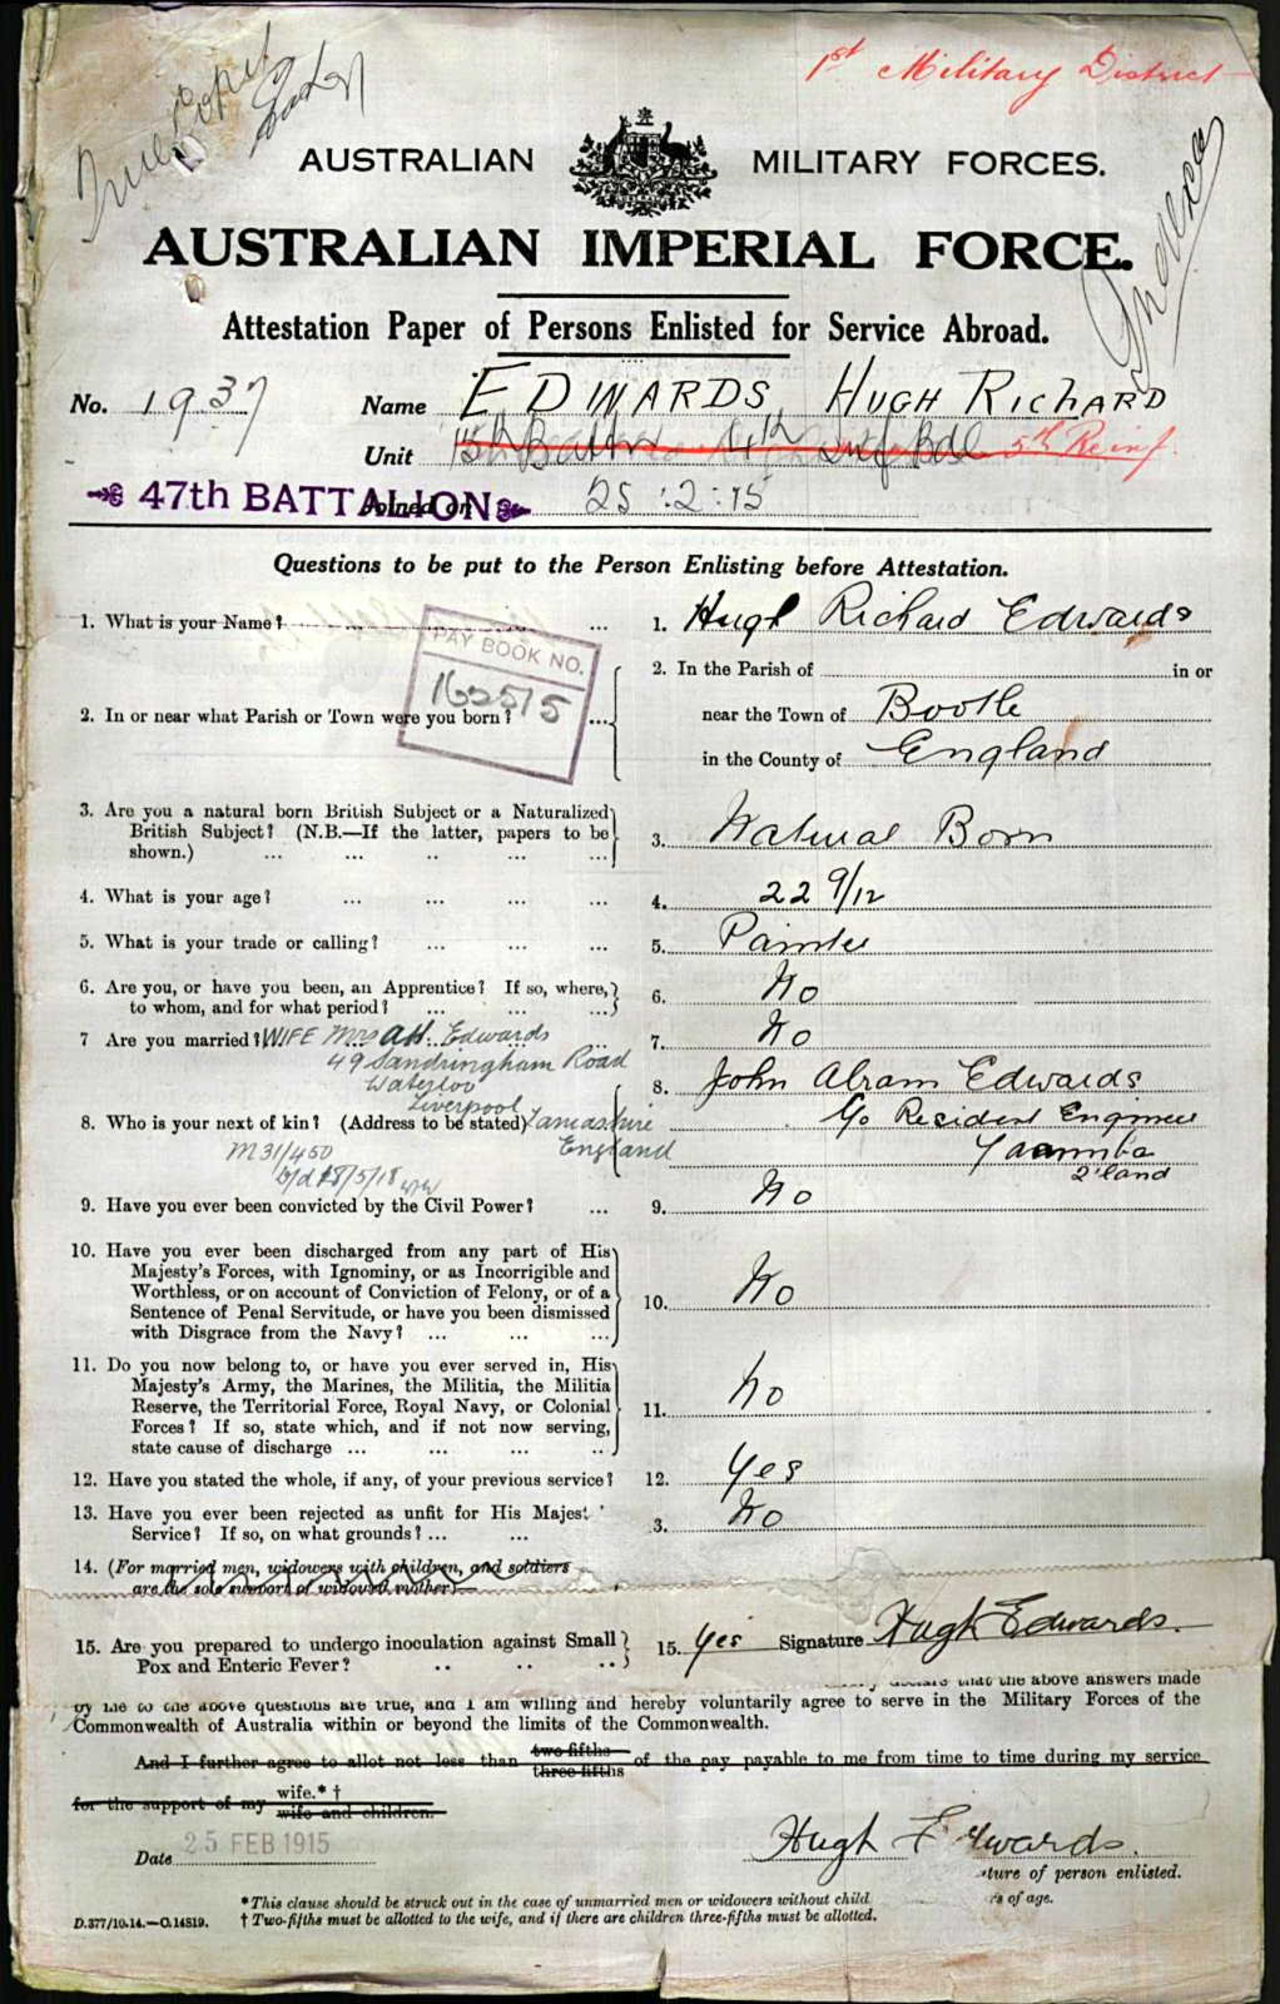 1st Military District
AUSTRALIAN MILITARY FORCES.
AUSTRALIAN IMPERIAL FORCE.
Attestation Paper of Persons Enlisted for Service Abroad.
No. 1937 Name EDWARDS, HUGH RICHARD
Unit 15th Battn 4th Inf Bde 5th Reinf.
47th BATTALION Joined on 25:2:15
Questions to be put to the Person Enlisting before Attestation.
1. What is your Name? ... 1. Hugh Richard Edwards
PAY BOOK NO.
2. In the Parish of in or
2. In or near what Parish or Town were you born? ... near the Town of Bootle
in the County of England
3. Are you a natural born British Subject or a Naturalized
British Subject? (N.B.—If the latter, papers to be
shown.) ... ... .. ... ... 3. Natural Born
4. What is your age? ... ... ... ... 4. 22 9/12
5. What is your trade or calling? ... ... ... 5. Painter
6. Are you, or have you been, an Apprentice? If so, where,
to whom, and for what period? ... ... ... 6. No
7 Are you married? WIFE Mrs A H. Edwards ... 7. No
49 Sandringham Road
Waterloo
8. John Abram Edwards
Liverpool
8. Who is your next of kin? (Address to be stated) Lancashire c/o Resident Engineer
M31/450 England Yaamba
Q'land
b/d 18/5/18
9. Have you ever been convicted by the Civil Power? ... 9. No
10. Have you ever been discharged from any part of His
Majesty's Forces, with Ignominy, or as Incorrigible and
Worthless, or on account of Conviction of Felony, or of a
Sentence of Penal Servitude, or have you been dismissed
with Disgrace from the Navy? ... ... ... 10. No
11. Do you now belong to, or have you ever served in, His
Majesty's Army, the Marines, the Militia, the Militia
Reserve, the Territorial Force, Royal Navy, or Colonial
Forces? If so, state which, and if not now serving,
state cause of discharge ... ... ... .. 11. No
12. Have you stated the whole, if any, of your previous service? 12. Yes
13. Have you ever been rejected as unfit for His Majest '
Service? If so, on what grounds? ... ... 3. No
14. (For married men, widowers with children, and soldiers
are the sole support of widowed mother)
15. Are you prepared to undergo inoculation against Small
Pox and Enteric Fever? .. .. .. 15. Yes Signature Hugh Edwards.
the above answers made
by me to the above questions are true, and I am willing and hereby voluntarily agree to serve in the Military Forces of the
Commonwealth of Australia within or beyond the limits of the Commonwealth.
And I further agree to allot not less than two-fifths three-fifths of the pay payable to me from time to time during my service
for the support of my wife.* † wife and children.
Date 25 FEB 1915 Hugh Edwards.
ture of person enlisted.
*This clause should be struck out in the case of unmarried men or widowers without child rs of age.
D.377/10.14.—C.14819. † Two-fifths must be allotted to the wife, and if there are children three-fifths must be allotted.